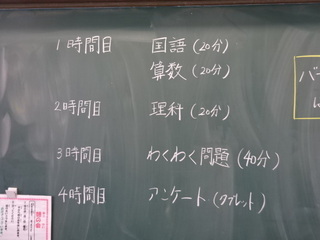 1時間目 国語(20分)
算数(20分)
2時間目 理科(20分)
3時間目 わくわく問題(40分)
4時間目 アンケート(タブレット)
バー